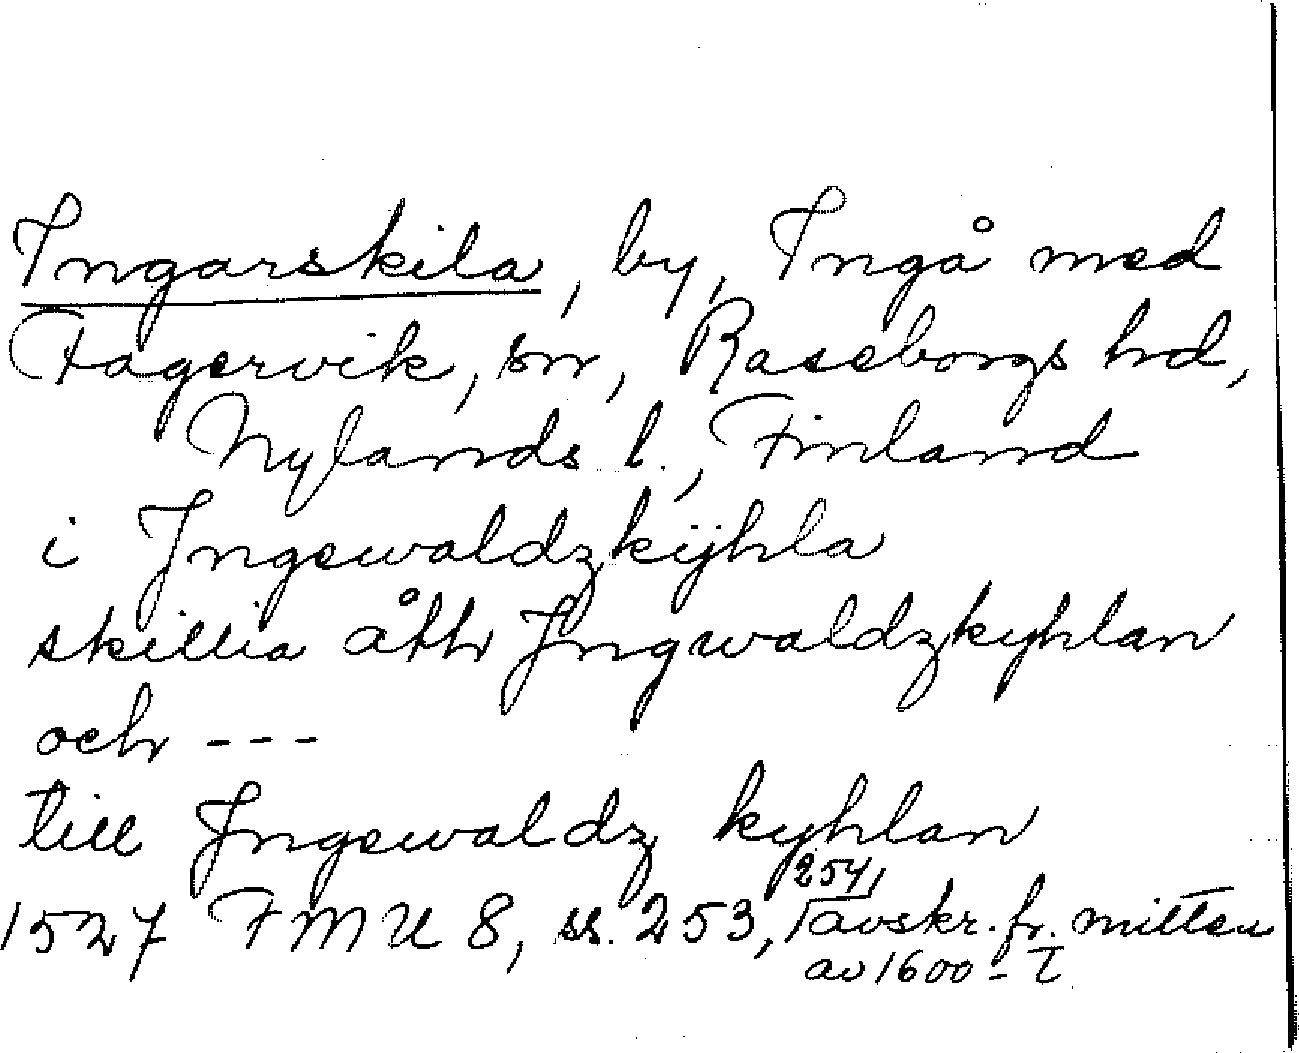 Ingarskila, by, Ingå med
Fagervik, sn, Raseborgs hd,
Nylands l., Finland
i Jngewaldzkÿhla
skillia åth Jngwaldzkyhlan
och ---
till Jngewaldz kyhlan
1527 FMU 8, ss. 253, 254, avskr. fr. mitten
av 1600-t